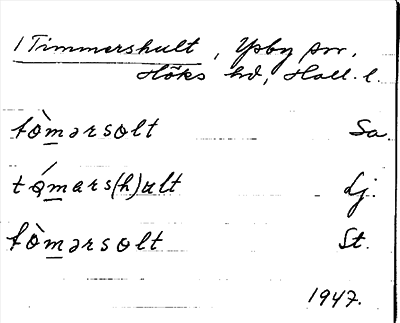 1 Timmershult, Ysby sn.
Höks hd, Hall. l.
tòmərsolt Sa.
tómars(h)ult Lj.
tòmərsolt St.
1947.